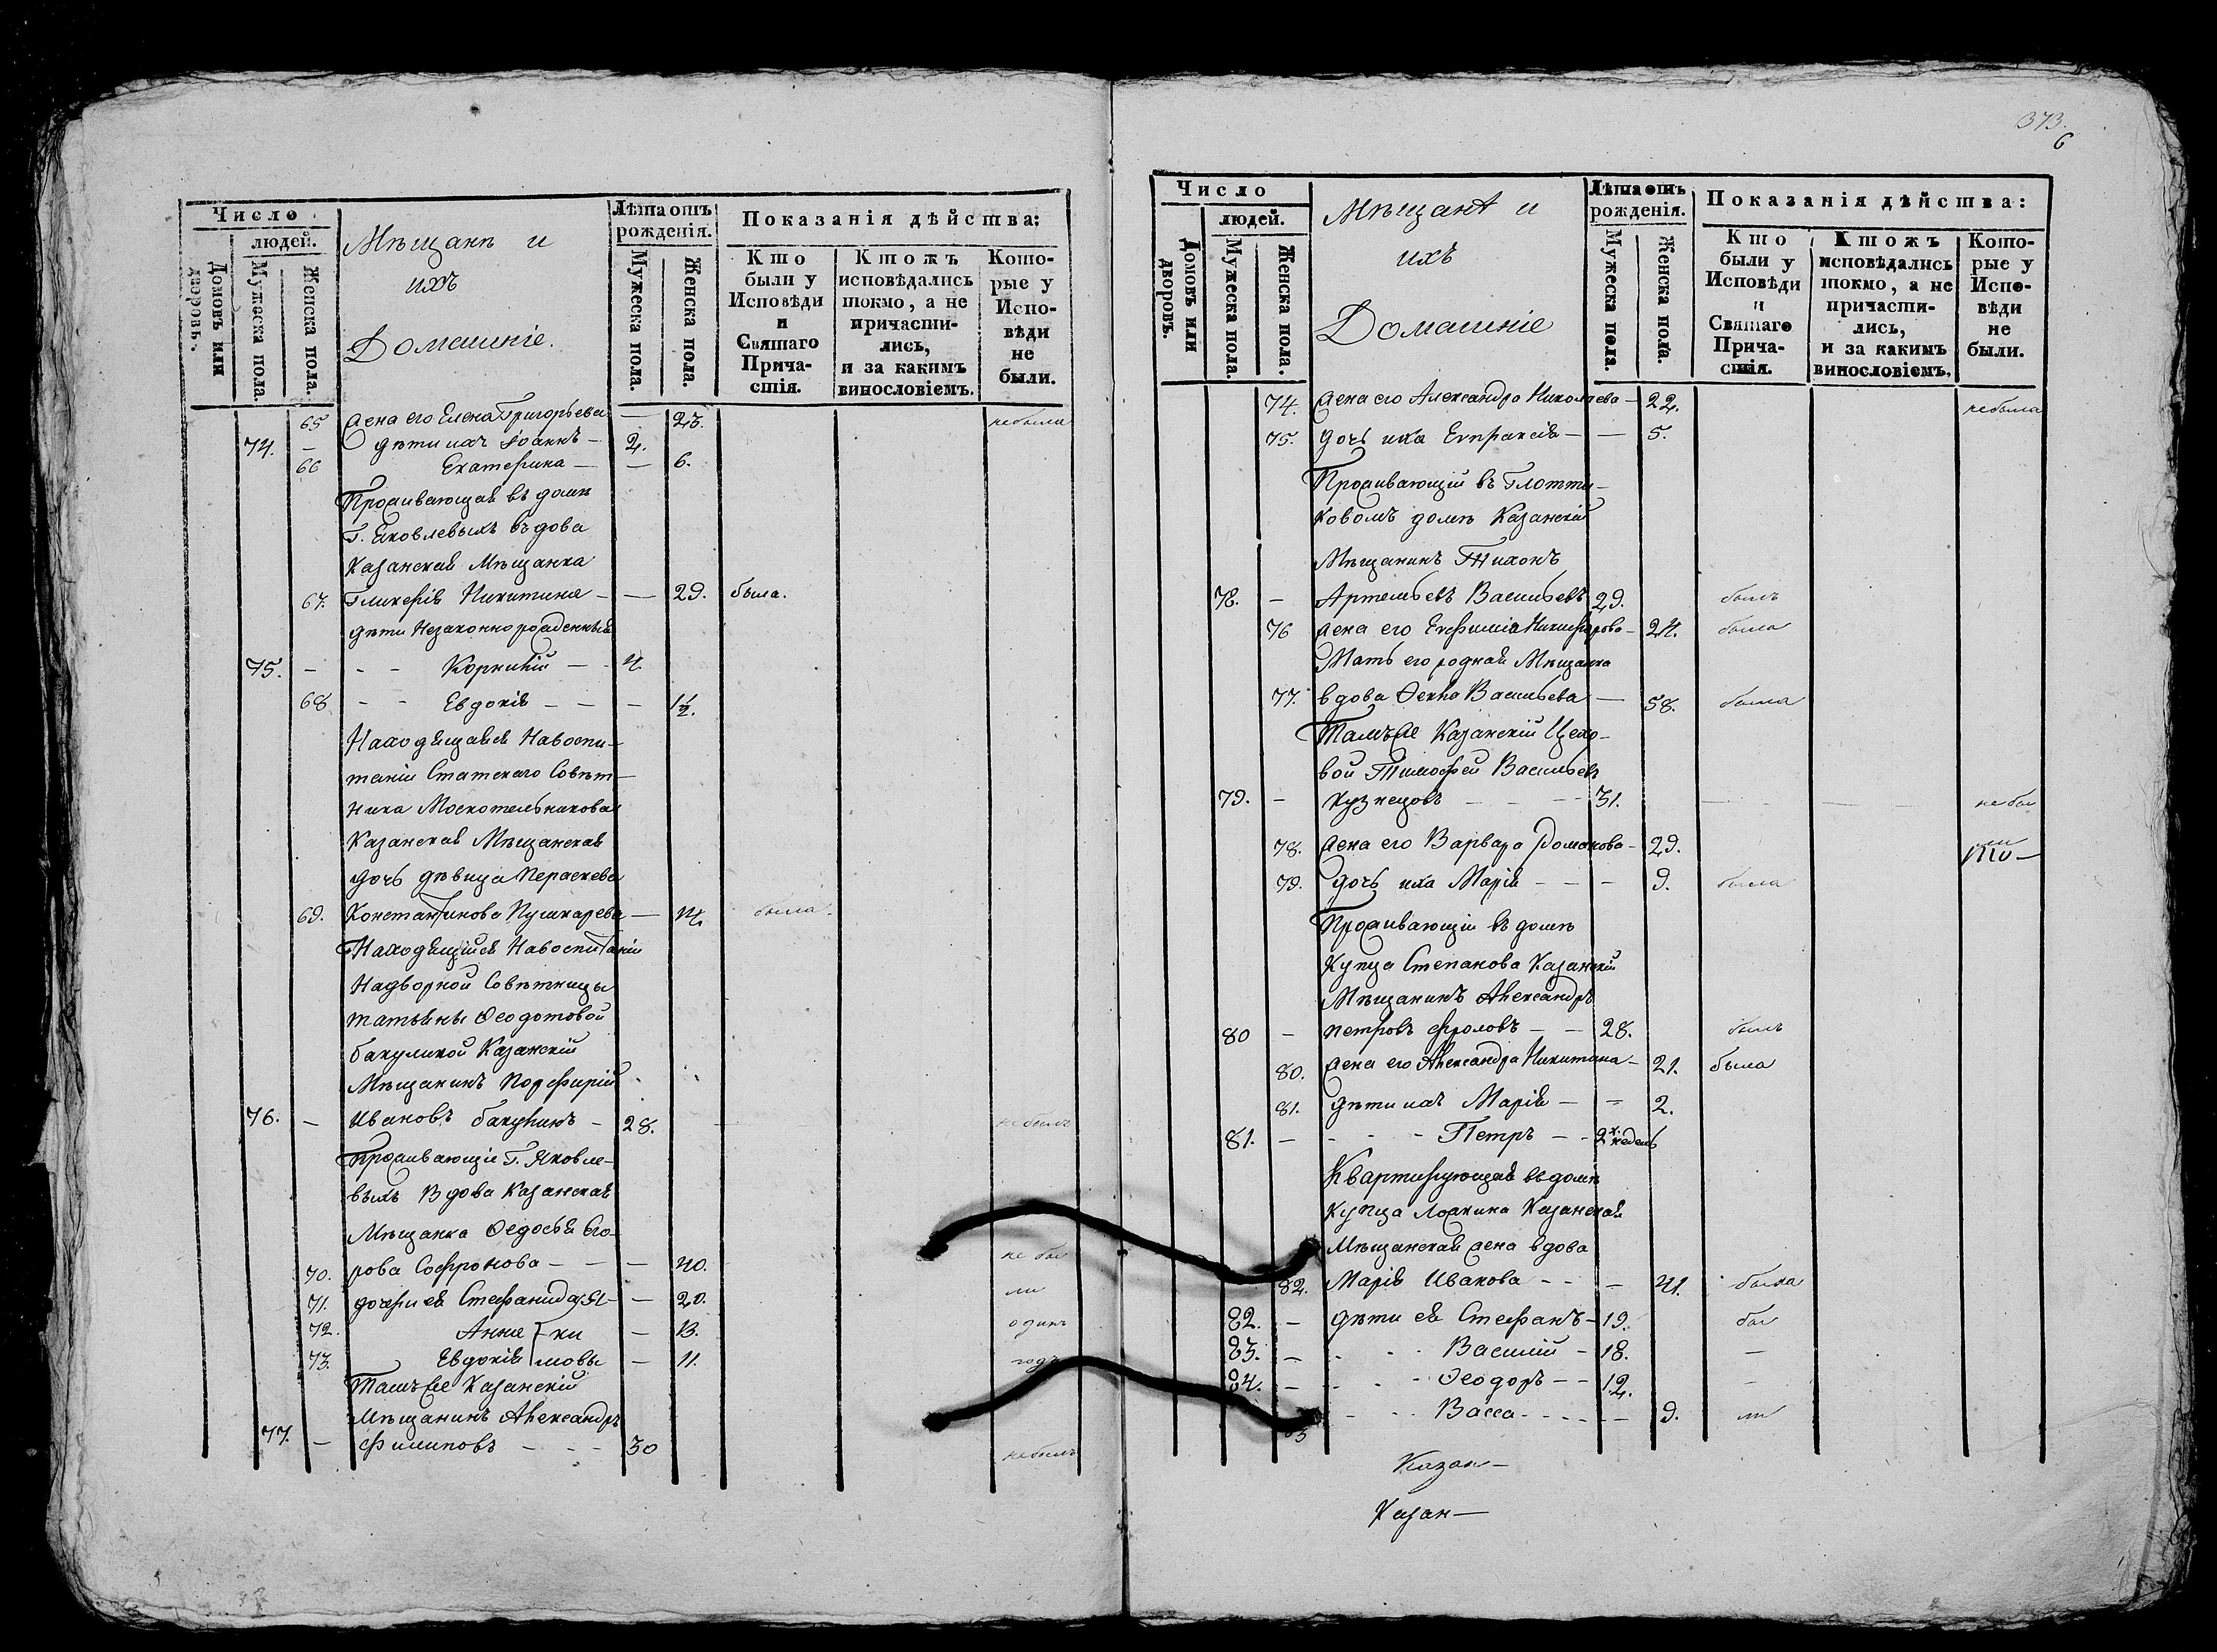 Число
людей.
Домовъ или дворовъ.
Мужеска пола.
Женска пола.
Мѣщанъ и
ихъ
Домашніе.
Лѣта отъ рожденія.
Мужеска пола.
Женска пола.
Показанія дѣйства:
Кто были у Исповѣди и Святаго Причастія.
Ктожъ исповѣдались токмо, а не причастились, и за какимъ винословіемъ.
Которые у Исповѣди не были.
65 жена его Елена Григорьева — 23. небыла
74. — дѣти ихъ Іоаннъ — 2.
66 Екатерина — — 6.
Проживающая въ домѣ
Г. Яковлевыхъ вдова
Казанская Мѣщанка
67. Гликерія Никитина — — 29. была.
дѣти Незаконнорожденныя
75. — - - Корнилій — - 4.
68 - - Евдокія - - — 1½.
Находящаяся Навоспи-
таніи Статскаго Совѣт-
ника Москотельникова
Казанская Мѣщанская
дочь дѣвица Параскева
69. Константинова Пушкарева — 14. была.
Находящійся Навоспитаніи
Надворной Совѣтницы
Татьяны Ѳеодотовой
бакулиной Казанскій
Мѣщанинъ Порфирій
76. — Ивановъ бакунинъ - 28. — небылъ
Проживающіе Г. Яковле-
выхъ Вдова Казанская
Мѣщанка Ѳедосья Его-
70. рова Софронова - — — 40. не бы
71. дочери ея Стефанида Я- — 20. ли
72. Анна ки — 13. одинъ
73. Евдокія мовы — 11. годъ
Тамъже Казанскій
Мѣщанинъ Александръ
77. — Филиповъ - - - 30 небылъ
373.
6
Число
людей.
Домовъ или дворовъ.
Мужеска пола.
Женска пола.
Мѣщанъ и
ихъ
Домашніе
Лѣта отъ рожденія.
Мужеска пола.
Женска пола.
Показанія дѣйства:
Кто были у Исповѣди и Святаго Причастія.
Ктожъ исповѣдались токмо, а не причастились, и за какимъ винословіемъ.
Которые у Исповѣди не были.
74. жена его Александра Николаева — 22. небыла
75. дочь ихъ Евпраксія — — 5.
Проживающій въ
ковомъ домѣ Казанскій
Мѣщанинъ Тихонъ
78. — Артемьевъ Васильевъ 29. былъ
76 жена его Евфимія Никифорова — 24. была
Мать его родная Мѣщанка
77. вдова Ѳекла Васильева — 58. была
Тамъже Казанскій Цехо-
вой Тимофей Васильевъ
79. - Кузнецовъ - - - - 31. — — не бы
78. жена его Варвара Романова — 29. ли
79. дочь ихъ Марія - - - 9. была
Проживающій въ домѣ
Купца Степанова Казанскій
Мѣщанинъ Александръ
80 - Петровъ Фроловъ - - 28. былъ
80. жена его Александра Никитина — 21. была
81. дѣти ихъ Марія — - 2.
81. — - - - Петръ - - 2х. недель
Квартирующая въ домѣ
Купца Казанская
Мѣщанская жена вдова
82. Марія Иванова - - - 41. была
82. — дѣти ея Стефанъ - 19. бы
83. — - - Василій - 18. —
84. — - - Ѳеодоръ - - 12. -
- - - Васса - - - - - 9. ли
Казан—
Казан—